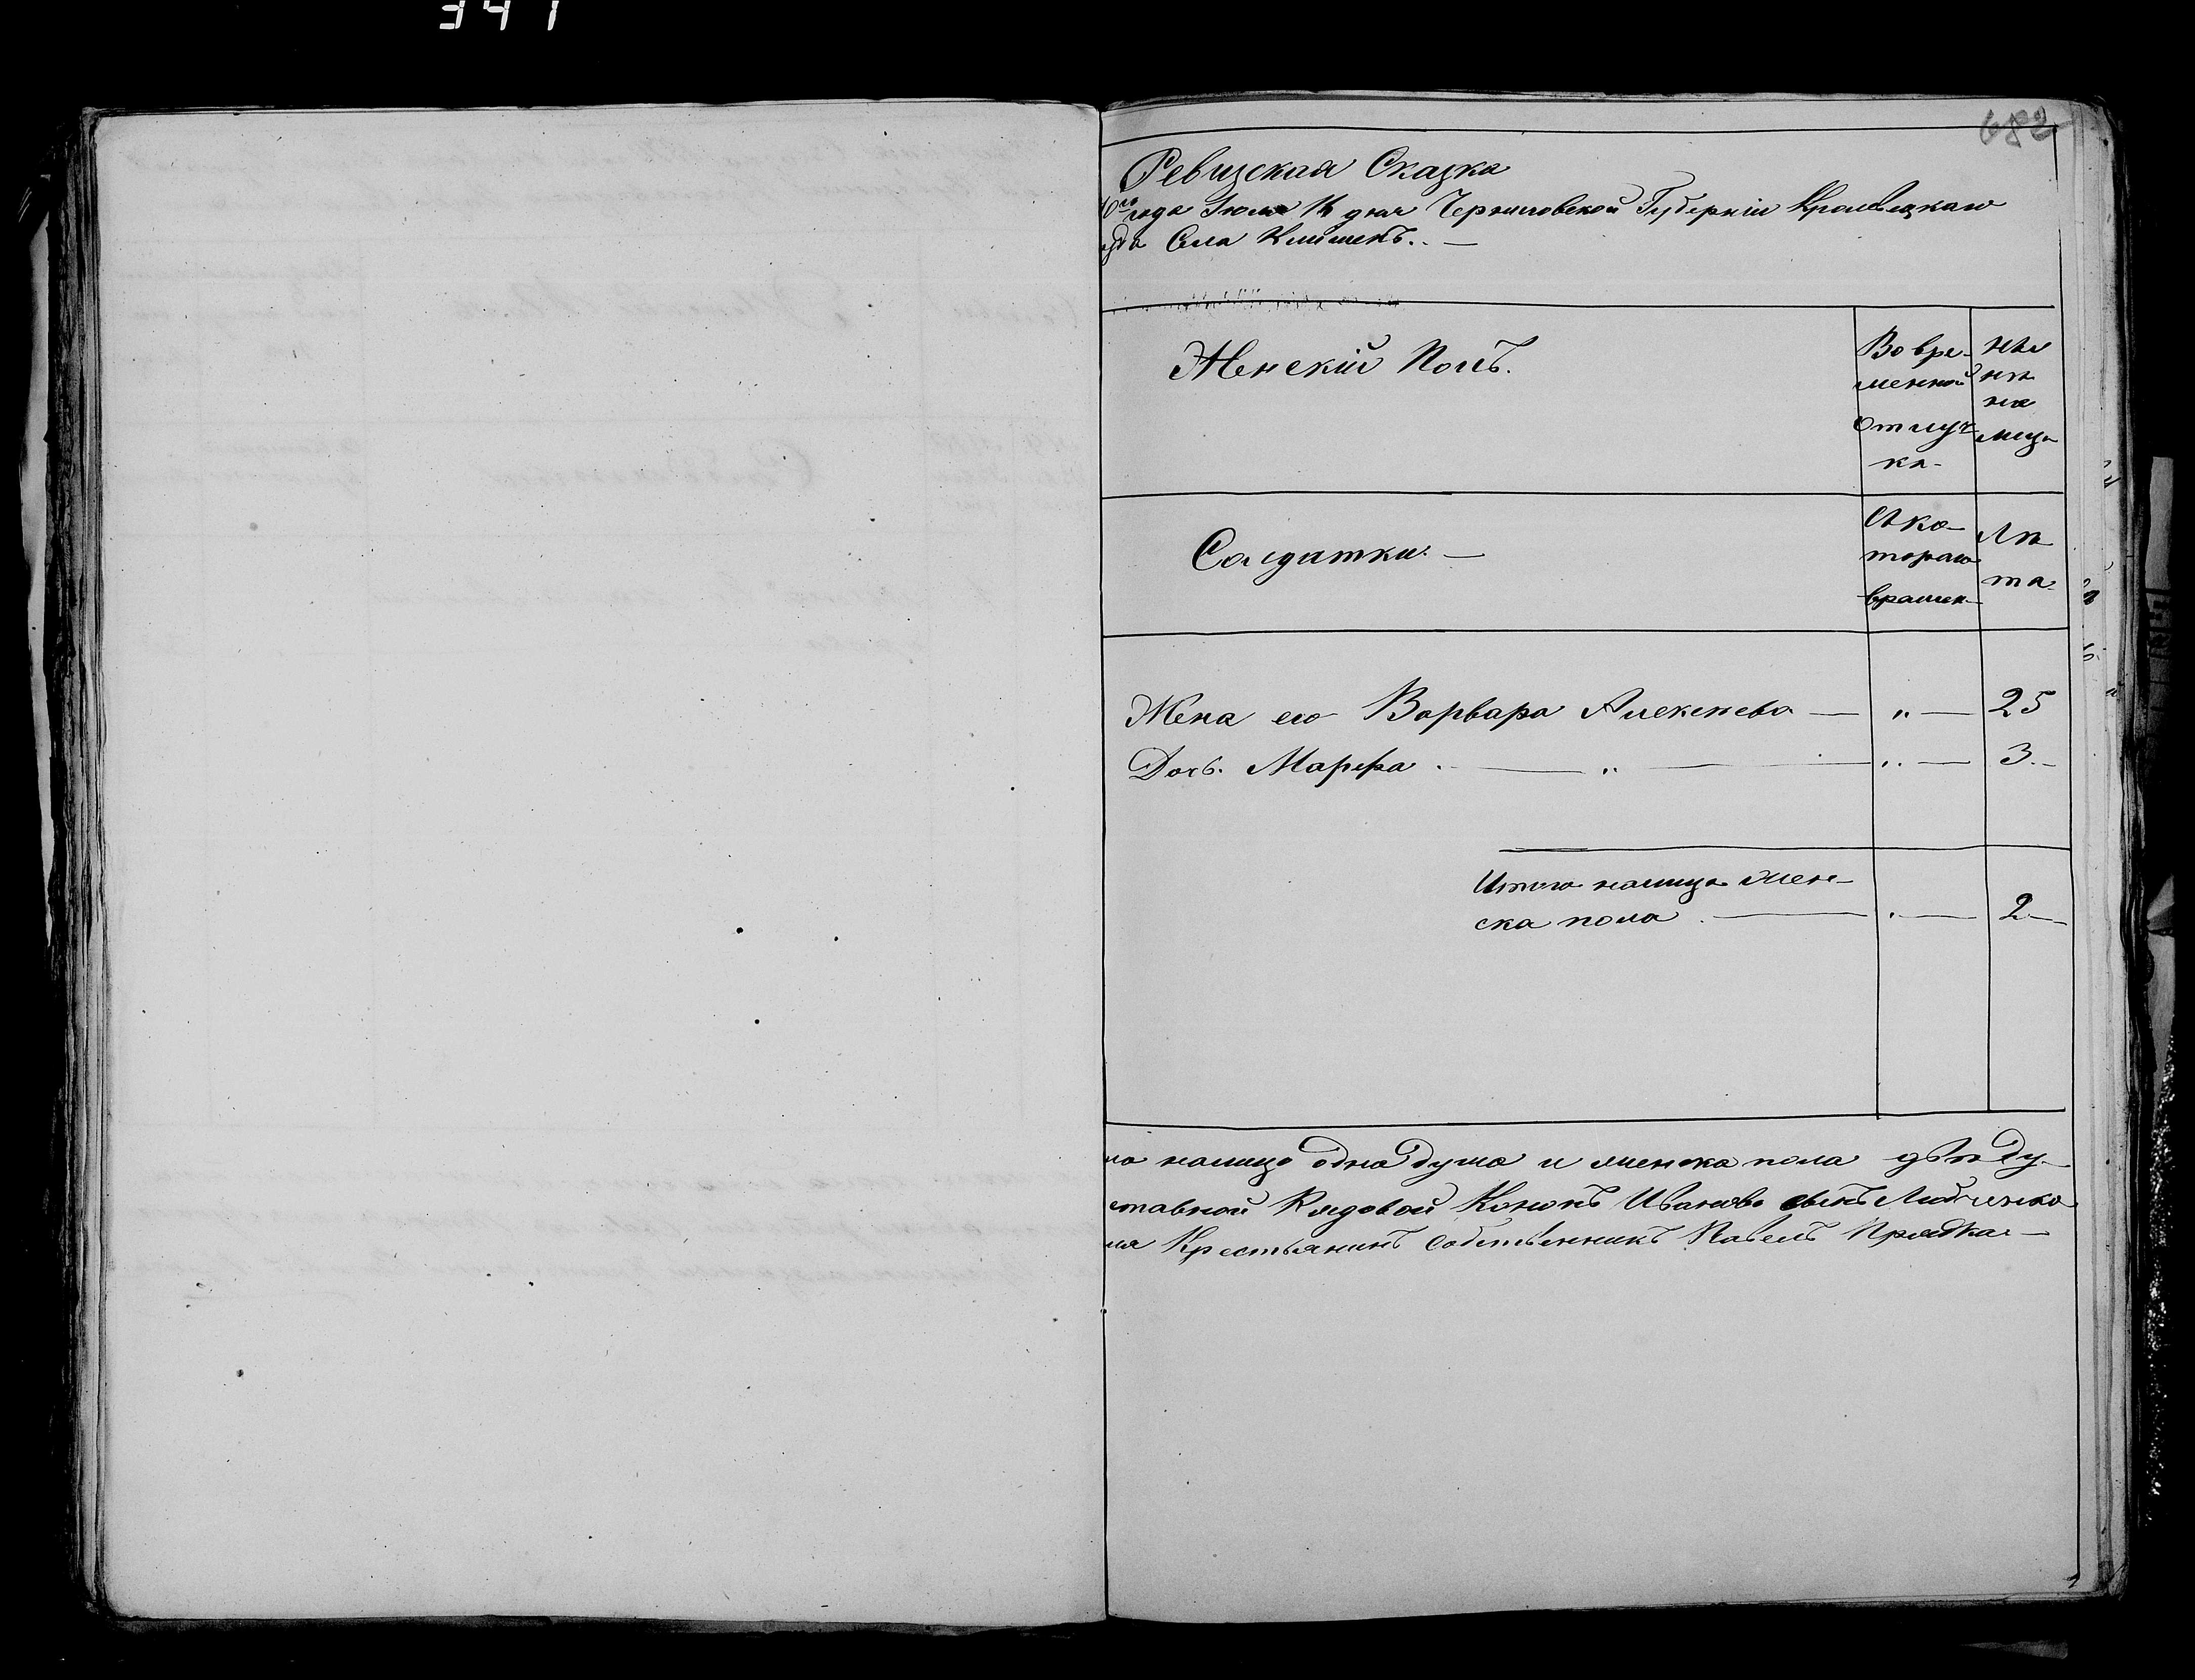 341
682
Ревизская Сказка
0го года Июля 16 дня Черниговской Губернии Кролевецкаго
зда Села Клишекъ. —
Женскій Полъ.
Во вре-
менной
отлуч-
ка-
Ны
нѣ
на
лицо
Съ ко-
тораго
времен-
Лѣ
та
Солдатки. —
Жена его Варвара Алексѣева — „ — 25
Дочь Марфа — „ — „ — 3. —
Итого налицо жен-
ска пола — 2 —
ла налицо одна душа и женска пола двѣ ду-
ставной Рядовой Кононъ Ивановъ сынъ
ля Крестьянинъ Собственникъ Павелъ Прядка —